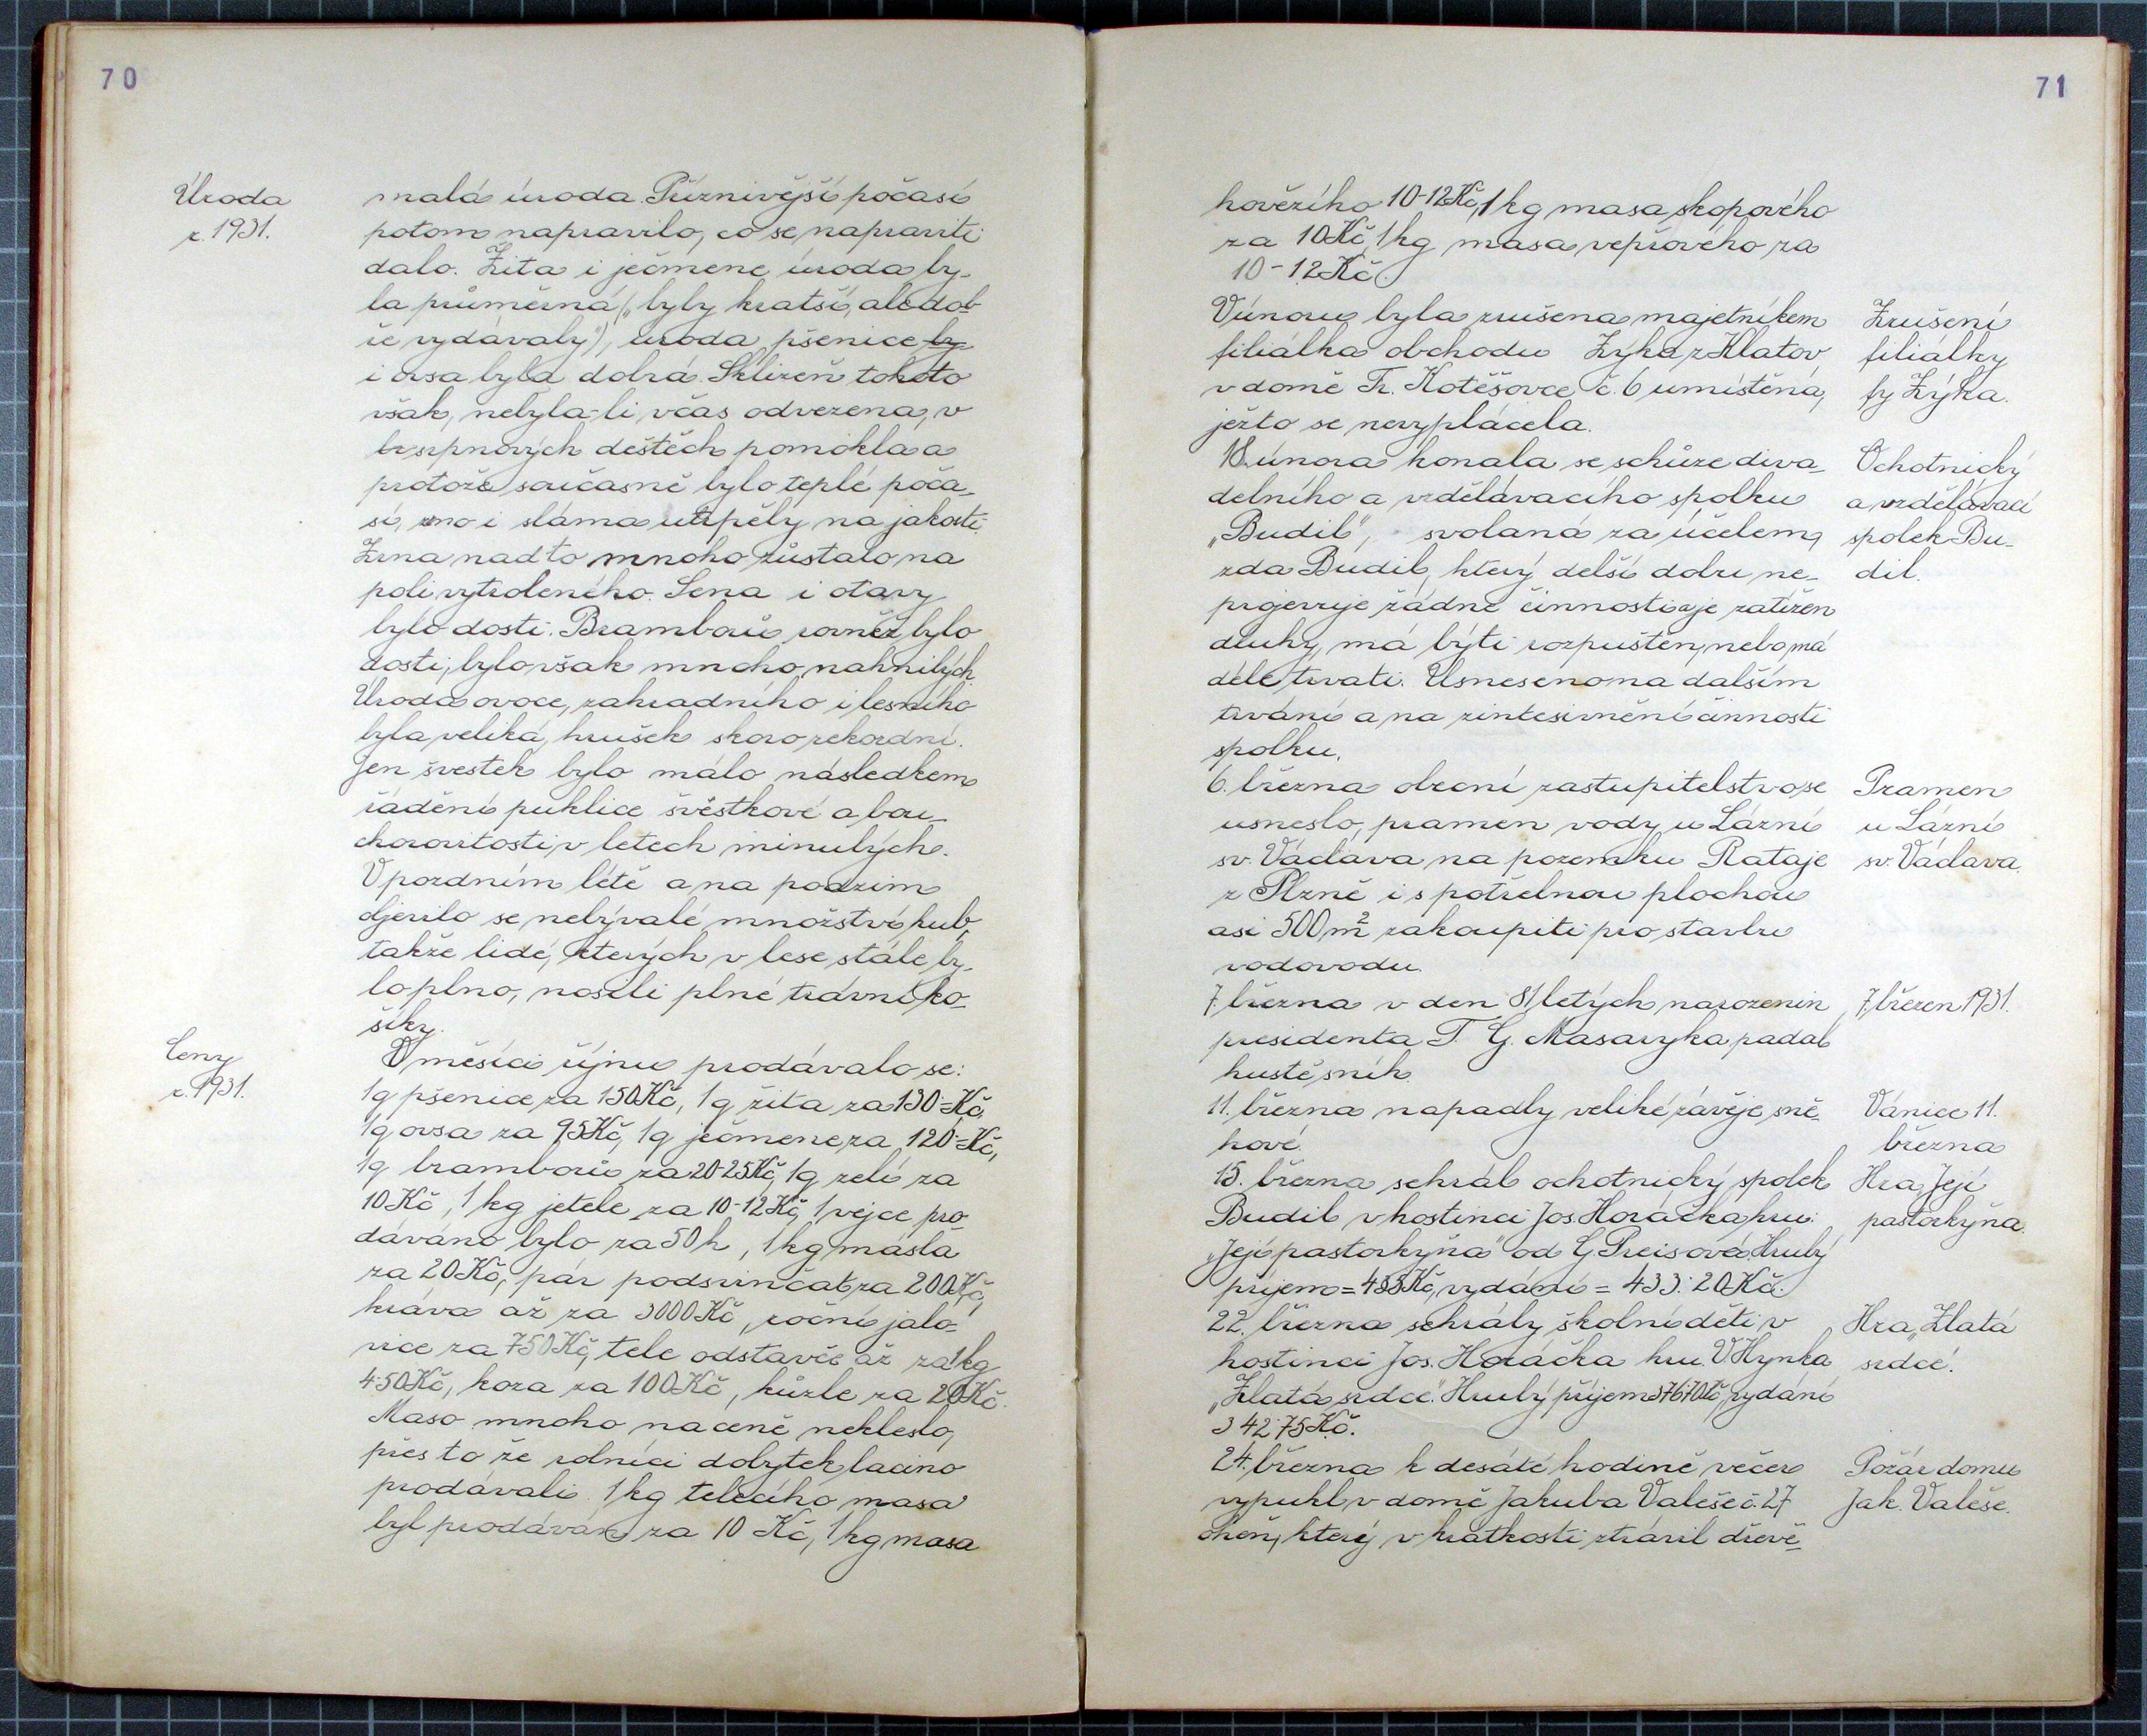 70
Úroda
r. 1931.
malá úroda. Příznivější počasí
potom napravilo, co se napraviti
dalo. Žita i ječmene úroda by-
la průměrná („byly kratší, ale dob-
ře vydávaly"), úroda pšenice by
i ovsa byla dobrá. Sklizeň tohoto
však, nebyla-li včas odvezena, v
srpnových deštěch pomokla a
protože současně bylo teplé poča-
sí, zrno i sláma utrpěly na jakosti.
Zrna nad to mnoho zůstalo na
poli vytroleného. Sena i otavy
bylo dosti. Bramborů rovněž bylo
dosti, bylo však mnoho nahnilých.
Úroda ovoce, zahradního i lesního
byla veliká, hrušek skoro rekordní.
Jen švestek bylo málo následkem
řádění puklice švěstkové a bou-
chorovitosti v letech minulých.
V pozdním létě a na podzim
objevilo se nebývalé množství hub,
takže lidé, kterých v lese stále by-
lo plno, nosili plné trávní ko-
šíky.
Ceny
r. 1931.
V měsíci říjnu prodávalo se:
1q pšenice za 150 Kč, 1q žita za 130·- Kč,
1q ovsa za 95 Kč, 1q ječmene za 120·- Kč,
1q bramborů za 20-25 Kč, 1q zelí za
10 Kč, 1 kg jetele za 10-12 Kč, 1 vejce pro-
dáváno bylo za 50 h, 1 kg másla
za 20 Kč, pár podsvinčat za 200 Kč,
kráva až za 3000 Kč, roční jalo-
vice za 750 Kč, tele odstavče až za 1 kg
4·50 Kč, koza za 100 Kč, kůzle za 20 Kč.
Maso mnoho na ceně nekleslo,
přes to že rolníci dobytek lacino
prodávali. 1 kg telecího masa
byl prodáván za 10 Kč, 1 kg masa
71
hovězího 10-12 Kč, 1 kg masa skopového
za 10 Kč, 1 kg masa vepřového za
10-12 Kč.
V únoru byla zrušena majetníkem
filiálka obchodu Zýka z Klatov
v domě Fr. Kotěšovce č. 6 umístěná,
ježto se nevyplácela.
Zrušení
filiálky
fy Zýka.
18. února konala se schůze diva-
delního a vzdělávacího spolku
„Budil", svolaná za účelem,
zda Budil, který delší dobu ne-
projevuje žádné činnosti a je zatížen
dluhy, má býti rozpuštěn, nebo má
déle trvati. Usneseno na dalším
trvání a na zintesivnění činnosti
spolku.
Ochotnický
a vzdělávací
spolek Bu-
dil.
6. března obecní zastupitelstvo se
usneslo, pramen vody u Lázní
sv. Václava na pozemku Rataje
z Plzně i s potřebnou plochou
asi 500 m² zakoupiti pro stavbu
vodovodu.
Pramen
u Lázní
sv. Václava.
7. března v den 81letých narozenin
presidenta T. G. Masaryka padal
hustě sníh.
7. březen 1931.
11. března napadly veliké závěje sně-
hové.
Vánice 11.
března
15. března sehrál ochotnický spolek
Budil v hostinci Jos. Horáčka hru:
„Její pastorkyňa" od G. Preisové. Hrubý
příjem = 455 Kč, vydání = 433·20 Kč.
Hra Její
pastorkyňa.
22. března sehrály školní děti v
hostinci Jos. Horáčka hru V. Hynka
„Zlatá srdce." Hrubý příjem 376·70 Kč, vydání
342·75 Kč.
Hra „Zlatá
srdce."
24. března k desáté hodině večer
vypukl v domě Jakuba Valeše č. 27
oheň, který v krátkosti ztrávil dřevě-
Požár domu
Jak. Valeše.